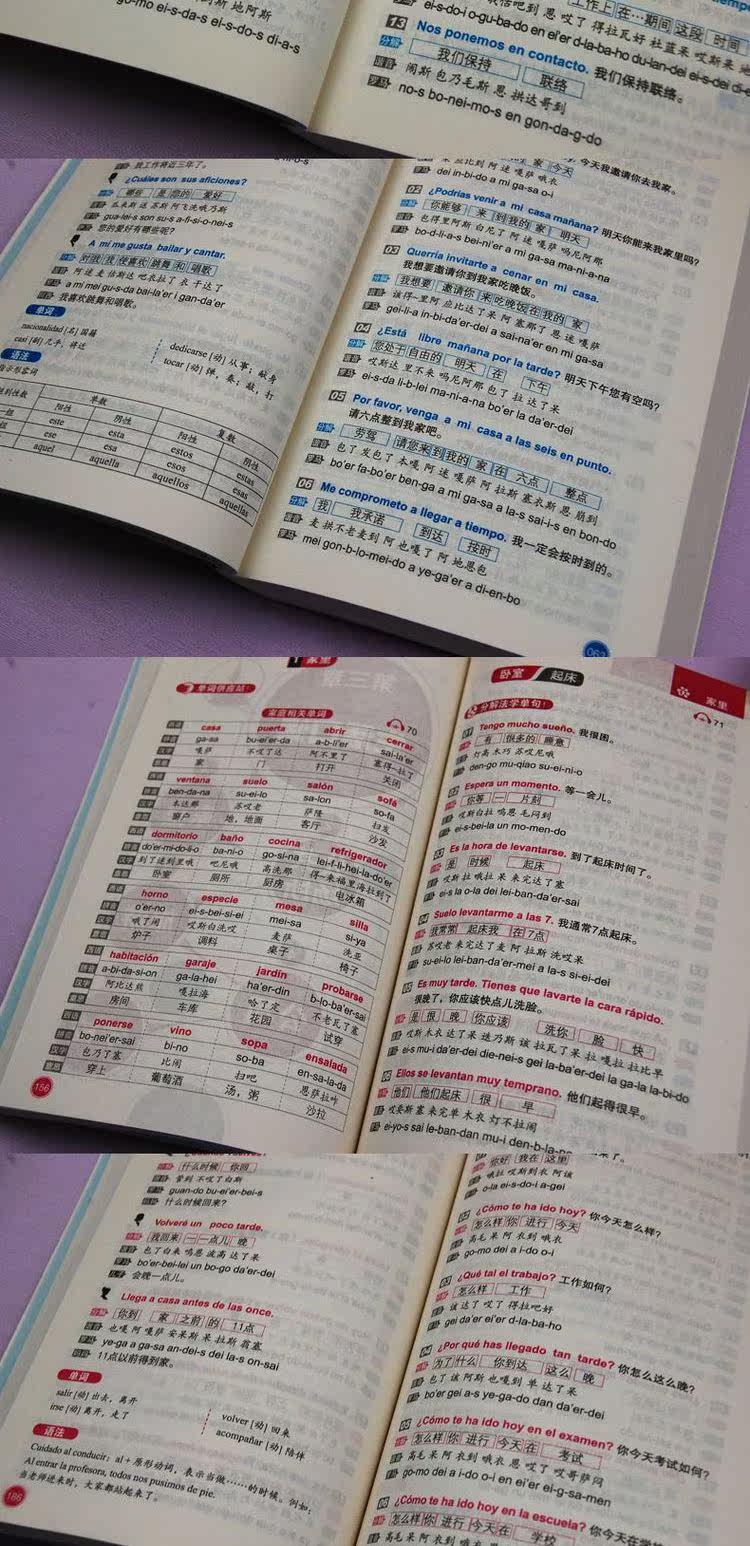 go-mo ei-s-da-s ei-s-do-s di-a-s
工作上 在…期间 这段 时间
ei-s-do-i o-gu-ba-do en ei'er d-la-ba-ho du-lan-dei ei-s-dei di-e
13 Nos ponemos en contacto. 我们保持联络。
分解 我们保持 联络
谐音 闹斯 包乃毛斯 恩 拱达哥到
罗马 no-s bo-nei-mo-s en gon-da-g-do
我工作将近三年了。
¿Cuáles son sus aficiones?
分解 哪些 是 您的 爱好
瓜来斯 送 苏斯 阿飞洗哦乃斯
gua-lei-s son su-s a-fi-si-o-nei-s
您的爱好有哪些呢?
A mí me gusta bailar y cantar.
分解 对我 我 使喜欢 跳舞 和 唱歌
阿 迷 麦 估斯达 吧衣拉了 衣 干达了
a mi mei gu-s-da bai-la'er i gan-da'er
我喜欢跳舞和唱歌。
单词
nacionalidad [名] 国籍
casi [副] 几乎,将近
dedicarse [动] 从事,献身
tocar [动] 弹,奏;敲,打
语法
指示形容词
单数 复数
阳性 阴性 阳性 阴性
este esta estos estas
ese esa esos esas
aquel aquella aquellos aquellas
今天我邀请你去我家。
dei in-bi-do a mi ga-sa o-i
02 ¿Podrías venir a mi casa mañana? 明天你能来我家里吗?
分解 你能够 来 到 我的 家 明天
谐音 包得里阿斯 白尼了 阿 迷 嘎萨 吗尼阿那
罗马 bo-d-li-a-s bei-ni'er a mi ga-sa ma-ni-a-na
03 Querría invitarte a cenar en mi casa.
我想要邀请你到我家吃晚饭。
分解 我想要 邀请你 来 吃晚饭 在 我的 家
谐音 该得~里阿 应比达了呆 阿 塞那了 恩 迷 嘎萨
罗马 gei-li-a in-bi-da'er-dei a sai-na'er en mi ga-sa
04 ¿Está libre mañana por la tarde? 明天下午您有空吗?
分解 您处于 自由的 明天 在 下午
谐音 哎斯达 里不来 吗尼阿那 包了 拉 达了呆
罗马 ei-s-da li-b-lei ma-ni-a-na bo'er la da'er-dei
05 Por favor, venga a mi casa a las seis en punto.
请六点整到我家吧。
分解 劳驾 请您来 到 我的 家 在 六点 整点
谐音 包了 发包了 本嘎 阿 迷 嘎萨 阿 拉斯 塞衣斯 恩 崩到
罗马 bo'er fa-bo'er ben-ga a mi ga-sa a la-s sai-i-s en bon-do
06 Me comprometo a llegar a tiempo. 我一定会按时到的。
分解 我 我承诺 到达 按时
谐音 麦 拱不老麦到 阿 也嘎了 阿 地恩包
罗马 mei gon-b-lo-mei-do a ye-ga'er a di-en-bo
063
1 家里
单词供应站!
家庭相关单词
70
casa puerta abrir cerrar
ga-sa bu-ei'er-da a-b-li'er sai-la'er
嘎萨 不哎了达 阿不里了 塞得~拉了
家 门 打开 关闭
ventana suelo salón sofá
ben-da-na su-ei-lo sa-lon so-fa
本达那 苏哎老 萨隆 扫发
窗户 地,地面 客厅 沙发
dormitorio baño cocina refrigerador
do'er-mi-do-li-o ba-ni-o go-si-na lei-f-li-hei-la-do'er
到了迷到里哦 吧尼哦 高洗那 得~来福里海拉到了
卧室 厕所 厨房 电冰箱
horno especie mesa silla
o'er-no ei-s-bei-si-ei mei-sa si-ya
哦了闹 哎斯白洗哎 麦萨 洗亚
炉子 调料 桌子 椅子
habitación garaje jardín probarse
a-bi-da-si-on ga-la-hei ha'er-din b-lo-ba'er-sai
阿比达熊 嘎拉海 哈了定 不老瓦了塞
房间 车库 花园 试穿
ponerse vino sopa ensalada
bo-nei'er-sai bi-no so-ba en-sa-la-da
包乃了塞 比闹 扫吧 恩萨拉哒
穿上 葡萄酒 汤,粥 沙拉
156
卧室 起床
家里
分解法学单句!
71
01 Tengo mucho sueño. 我很困。
有 很多的 睡意
灯高 木巧 苏哎尼哦
den-go mu-qiao su-ei-ni-o
02 Espera un momento. 等一会儿。
你等 一 片刻
哎斯白拉 呜恩 毛闷到
ei-s-bei-la un mo-men-do
03 Es la hora de levantarse. 到了起床时间了。
是 时候 起床
哎斯 拉 哦拉 呆 来完达了塞
ei-s la o-la dei lei-ban-da'er-sai
04 Suelo levantarme a las 7. 我通常7点起床。
我常常 起床我 在 7点
苏哎老 来完达了麦 阿 拉斯 洗哎呆
su-ei-lo lei-ban-da'er-mei a la-s si-ei-dei
05 Es muy tarde. Tienes que lavarte la cara rápido.
很晚了,你应该快点儿洗脸。
是 很 晚 你应该 洗你 脸 快
哎斯 木衣 达了呆 迭乃斯 该 拉瓦了呆 拉 嘎拉 拉比早
ei-s mu-i da'er-dei die-nei-s gei la-ba'er-dei la ga-la la-bi-do
06 Ellos se levantan muy temprano. 他们起得很早。
他们 他们起床 很 早
哎要斯 塞 来完单 木衣 灯不拉闹
ei-yo-s sai le-ban-dan mu-i den-b-la-no
什么时候 你回
管到 不哎了白斯
guan-do bu-ei'er-bei-s
什么时候回来?
Volveré un poco tarde.
我回来 一 一点儿 晚
包了白来 呜恩 波高 达了呆
bo'er-bei-lei un bo-go da'er-dei
会晚一点儿。
Llega a casa antes de las once.
分解 你到 家 之前 的 11点
也嘎 阿 嘎萨 安呆斯 呆 拉斯 翁塞
ye-ga a ga-sa an-dei-s dei la-s on-sai
11点以前得到家。
单词
salir [动] 出去,离开
irse [动] 离开,走了
volver [动] 回来
acompañar [动] 陪伴
语法
Cuidado al conducir: al + 原形动词,表示当做……的时候。例如:
Al entrar la profesora, todos nos pusimos de pie.
当老师进来时,大家都站起来了。
186
你好 我在 这里
哦拉 哎斯到衣 阿该
o-la ei-s-do-i a-gei
02 ¿Cómo te ha ido hoy? 你今天怎么样?
怎么样 你 进行 今天
高毛 呆 阿 衣到 哦衣
go-mo dei a i-do o-i
03 ¿Qué tal el trabajo? 工作如何?
怎么样 工作
该 达了 哎了 得拉吧好
gei da'er ei'er d-la-ba-ho
04 ¿Por qué has llegado tan tarde? 你怎么这么晚?
为了 什么 你到达 这么 晚
包了 该 阿斯 也嘎到 单 达了呆
bo'er gei a-s ye-ga-do dan da'er-dei
05 ¿Cómo te ha ido hoy en el examen? 你今天考试如何?
怎么样 你 进行 今天 在 考试
高毛 呆 阿 衣到 哦衣 恩 哎了 哎哥萨闷
go-mo dei a i-do o-i en ei'er ei-g-sa-men
06 ¿Cómo te ha ido hoy en la escuela? 你今天在学校
怎么样 你 进行 今天 在 学校